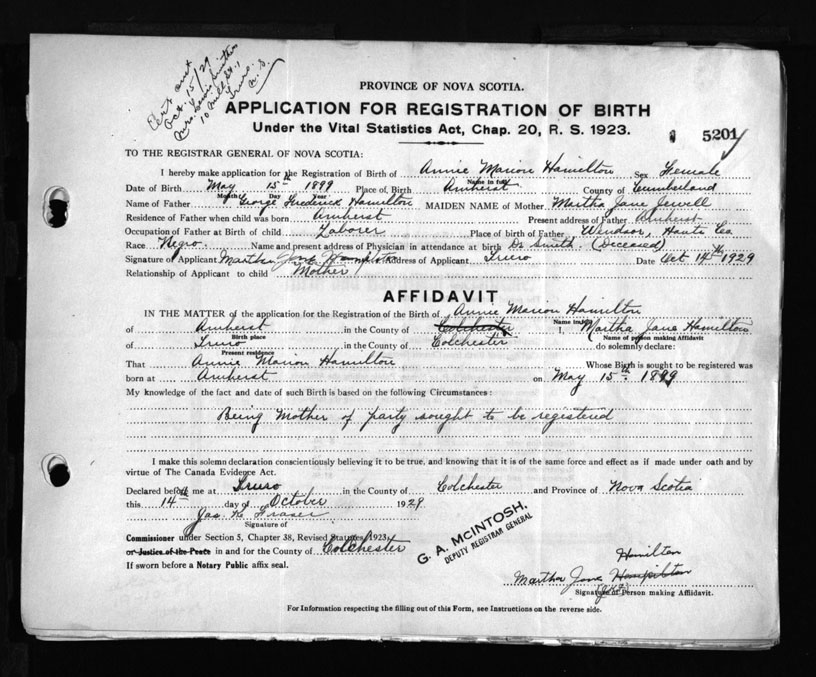 Cert sent
Oct. 15/29
Mrs. Smith
10 Mill St.
Truro.
N.S.
PROVINCE OF NOVA SCOTIA.
APPLICATION FOR REGISTRATION OF BIRTH
Under the Vital Statistics Act, Chap. 20, R. S. 1923.
5201
TO THE REGISTRAR GENERAL OF NOVA SCOTIA:
I hereby make application for the Registration of Birth of Annie Marion Hamilton Sex Female
Name in full
Date of Birth May 15th 1899 Place of Birth Amherst County of Cumberland
Month Day Year
Name of Father George Frederick Hamilton MAIDEN NAME of Mother Martha Jane Jewell
Residence of Father when child was born Amherst Present address of Father Amherst
Occupation of Father at Birth of child Laborer Place of birth of Father Windsor, Hants Co
Race Negro. Name and present address of Physician in attendance at birth Dr Smith. (Deceased)
Signature of Applicant Martha Jane Address of Applicant Truro Date Oct 14th 1929
Relationship of Applicant to child Mother
AFFIDAVIT
IN THE MATTER of the application for the Registration of the Birth of Annie Marion Hamilton
Name in full
of Amherst in the County of Colchester I, Martha Jane Hamilton
Birth place Name of person making Affidavit
of Truro in the County of Colchester do solemnly declare:
Present residence
That Annie Marion Hamilton Whose Birth is sought to be registered was
born at Amherst on May 15th 1899
My knowledge of the fact and date of such Birth is based on the following Circumstances:
Being Mother of party sought to be registered
I make this solemn declaration conscientiously believing it to be true, and knowing that it is of the same force and effect as if made under oath and by
virtue of The Canada Evidence Act.
Declared before me at Truro in the County of Colchester and Province of Nova Scotia
this 14th day of October 1929
Jas. K. Fraser
Signature of
Commissioner under Section 5, Chapter 38, Revised Statutes, 1923,
or Justice of the Peace in and for the County of Colchester
If sworn before a Notary Public affix seal.
G. A. McINTOSH,
DEPUTY REGISTRAR GENERAL
Hamilton
Martha Jane
Signature of Person making Affidavit.
For Information respecting the filling out of this Form, see Instructions on the reverse side.